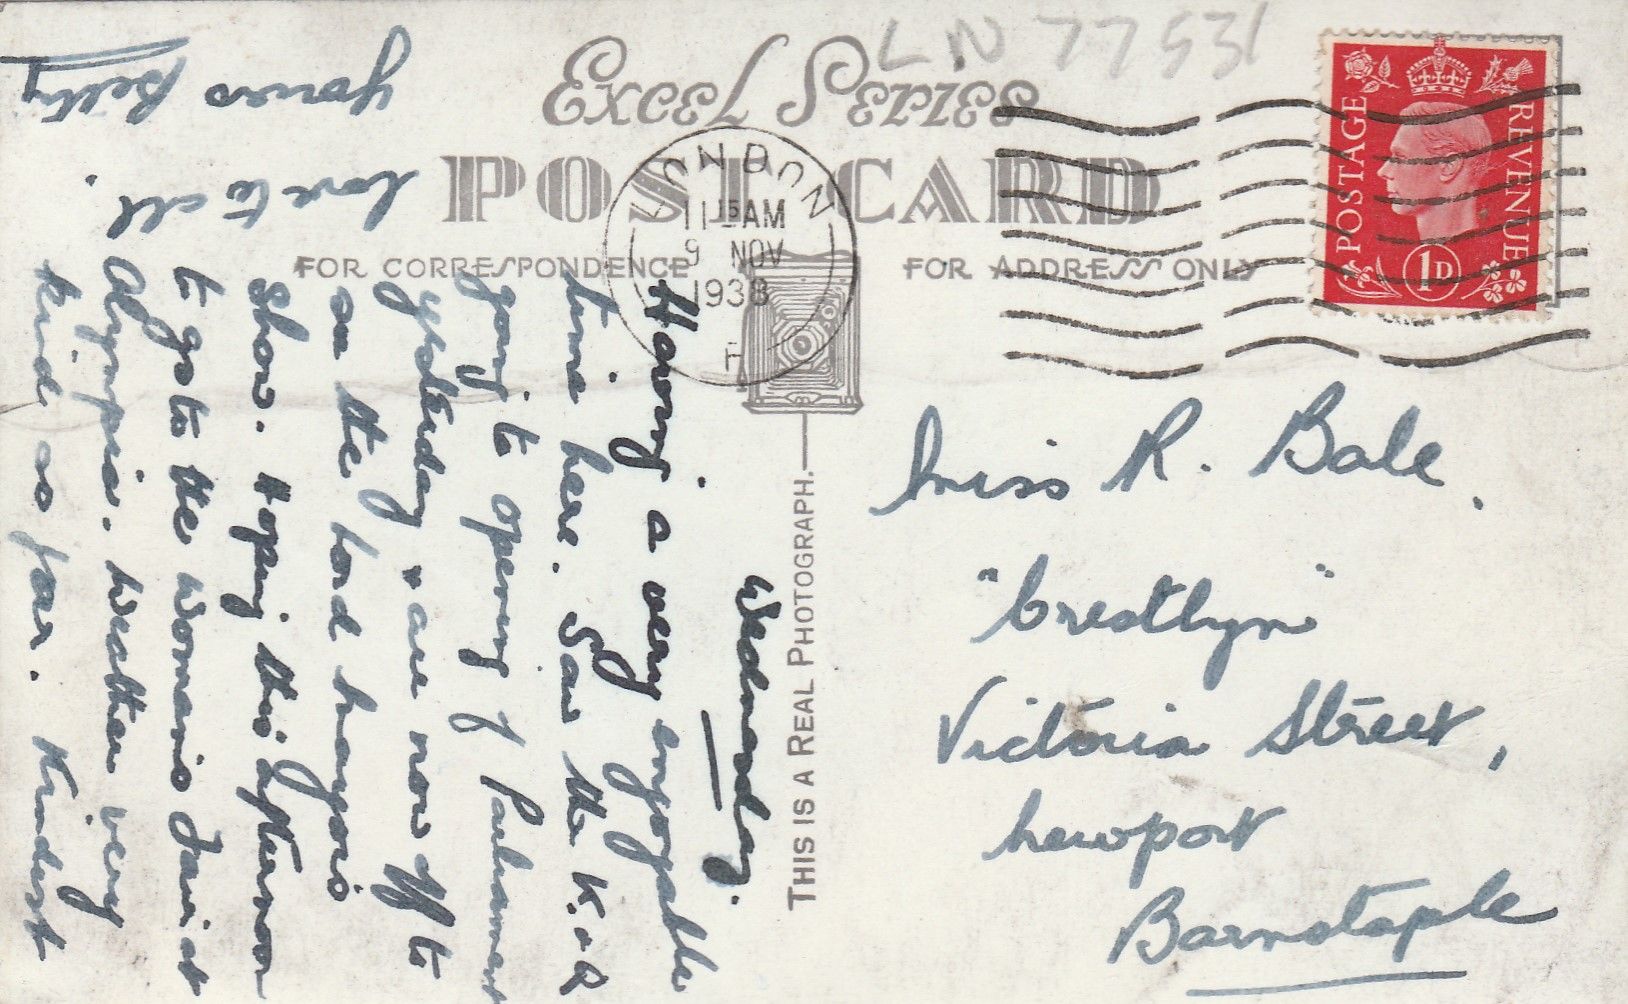 LN 77531
Excel Series
POST CARD
FOR CORRESPONDENCE
FOR ADDRESS ONLY
LONDON
11 15 AM
9 NOV
1938
POSTAGE
REVENUE
1D
THIS IS A REAL PHOTOGRAPH.
Wednesday.
Having a very enjoyable
time here. Saw the K. & Q
going to opening of Parliament
yesterday & are now off to
see the Lord Mayor's
Show. Hoping this afternoon
to go to the Woman's Fair at
Olympia. Weather very
kind so far. Kindest
love to all.
Yours Betty
Miss R. Bale.
"Crestlyn"
Victoria Street,
Newport
Barnstaple